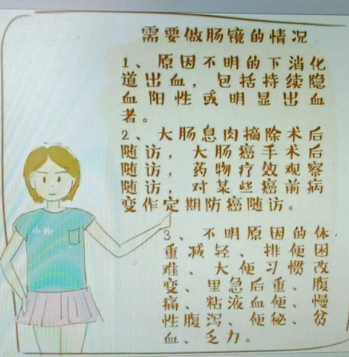 需要做肠镜的情况
1、原因不明的下消化
道出血，包括持续隐
血阳性或明显出血
者。
2、大肠息肉摘除术后
随访，大肠癌手术后
随访，药物疗效观察
随访，对某些癌前病
变作定期防癌随访。
3、不明原因的体
重减轻、排便困
难、大便习惯改
变、里急后重、腹
痛、粘液血便、慢
性腹泻、便秘、贫
血、乏力。